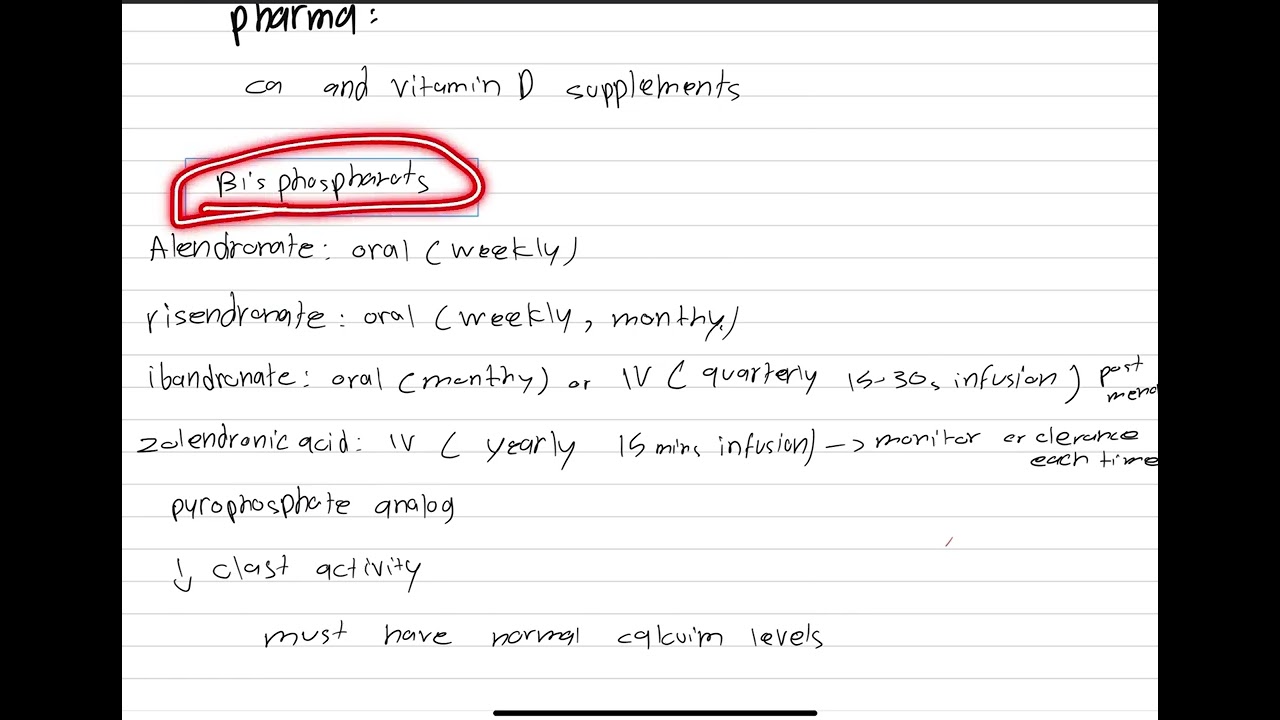 pharma:
ca and vitamin D supplements
Bis phospharats
Alendronate: oral (weekly)
risendronate: oral (weekly, monthy)
ibandronate: oral (monthy) or IV (quarterly 15-30s infusion) post
meno
zolendronic acid: IV (yearly 15 mins infusion) -> monitor cr clerance
each time
pyrophosphate analog
↓ clast activity
must have normal calcuim levels